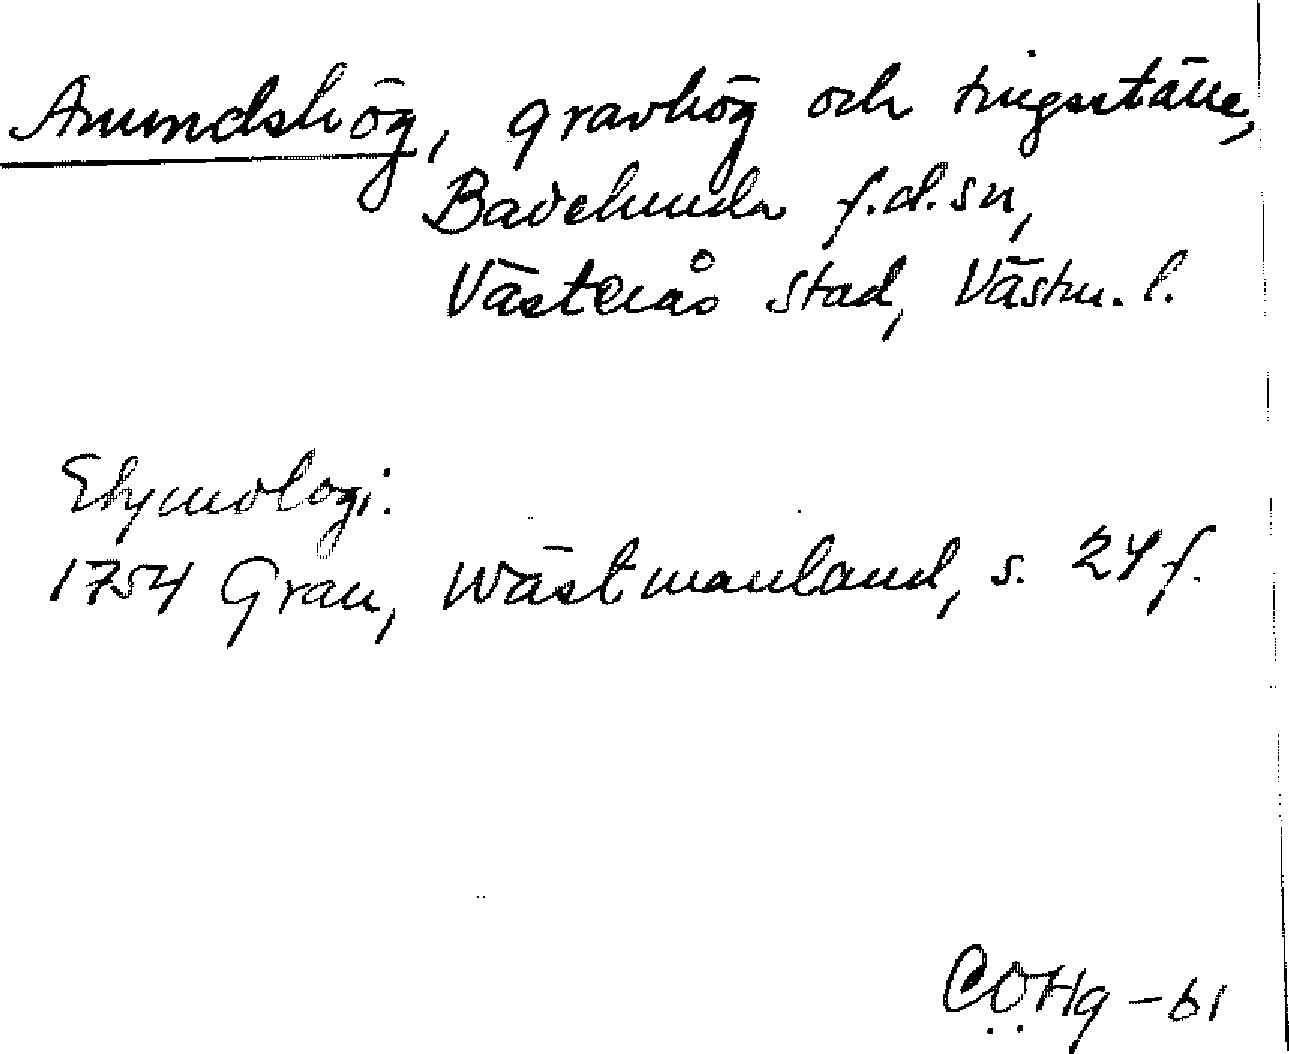 Anundshög, gravhög och tingsställe,
Badelunda f.d. sn,
Västerås stad, Västm. l.
Etymologi:
1754 Grau, Wästmanland, s. 24 f.
CÖHg -61